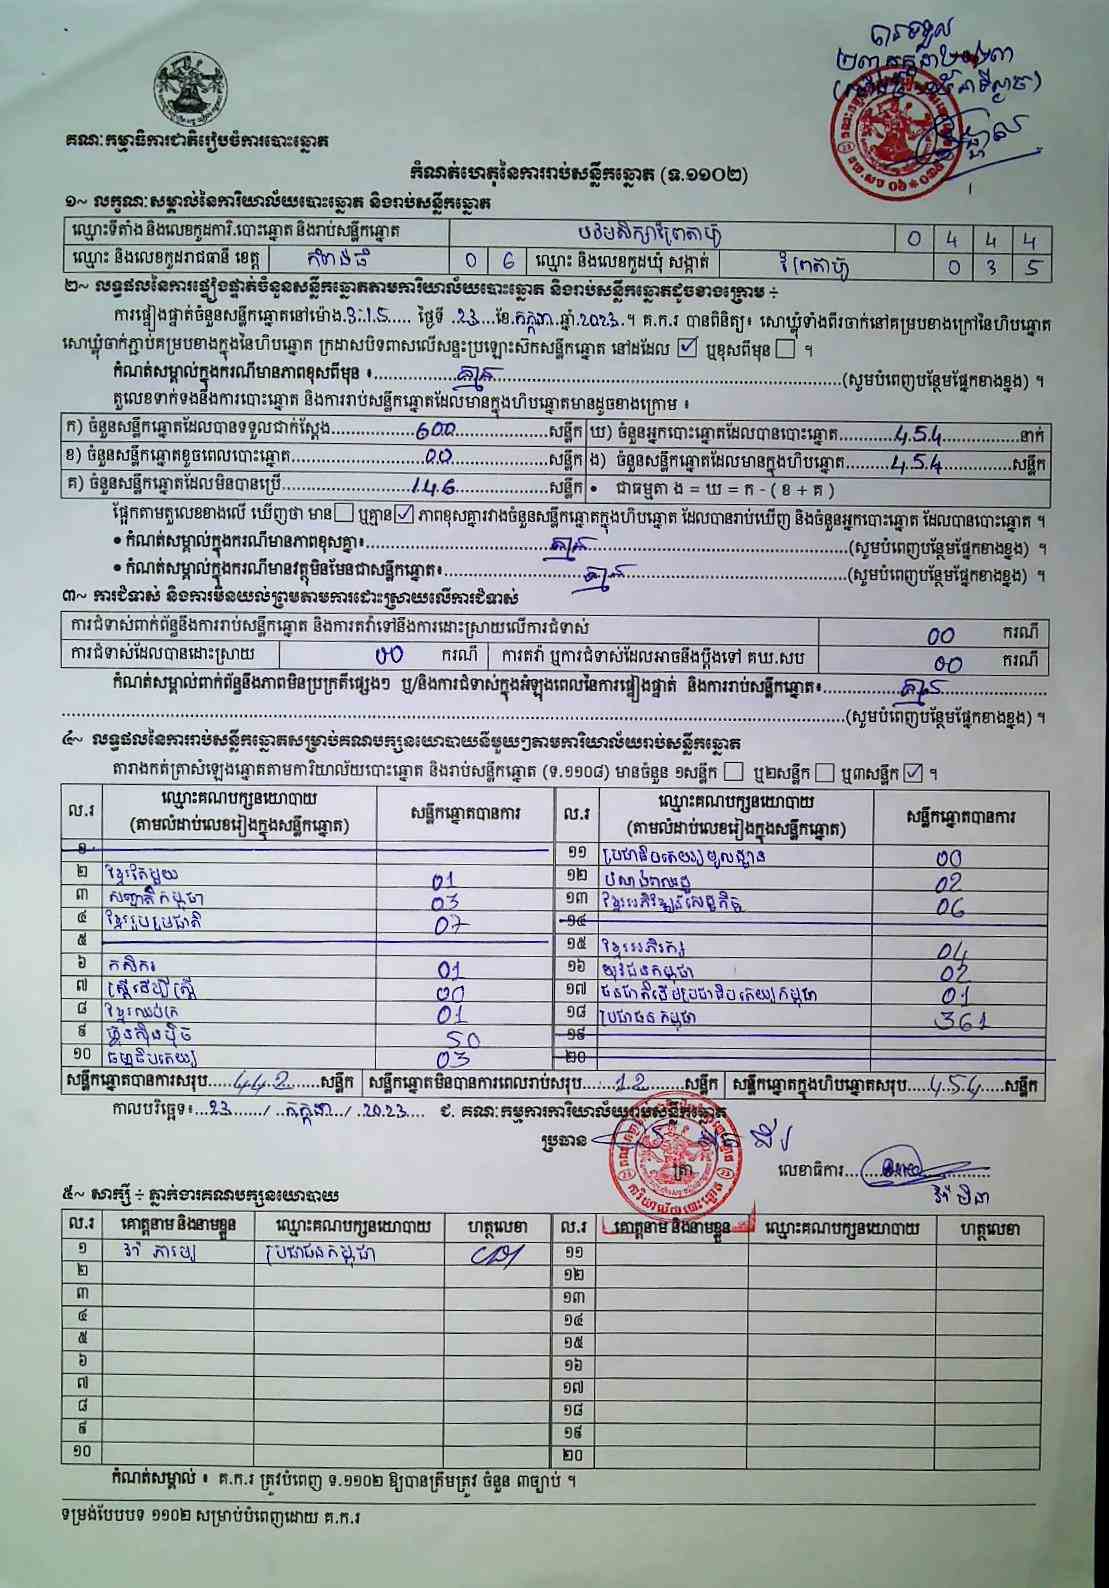 បានទទួល
គណៈកម្មាធិការជាតិរៀបចំការបោះឆ្នោត
កំណត់ហេតុនៃការរាប់សន្លឹកឆ្នោត (ទ.១១០២)
១~ លក្ខណៈសម្គាល់នៃការិយាល័យបោះឆ្នោត និងរាប់សន្លឹកឆ្នោត
ឈ្មោះទីតាំង និងលេខកូដការិ.បោះឆ្នោត និងរាប់សន្លឹកឆ្នោត 0 4 4 4
ឈ្មោះ និងលេខកូដរាជធានី ខេត្ត កំពង់ធំ 0 6 ឈ្មោះ និងលេខកូដឃុំ សង្កាត់ 0 3 5
២~ លទ្ធផលនៃការផ្ទៀងផ្ទាត់ចំនួនសន្លឹកឆ្នោតតាមការិយាល័យបោះឆ្នោត និងរាប់សន្លឹកឆ្នោតដូចខាងក្រោម ៖
ការផ្ទៀងផ្ទាត់ចំនួនសន្លឹកឆ្នោតនៅម៉ោង.3:15..... ថ្ងៃទី .23...ខែ.កក្កដា..ឆ្នាំ.2023..។ គ.ក.រ បានពិនិត្យ៖ សោឃ្លុំទាំងពីរចាក់នៅគម្របខាងក្រៅនៃហិបឆ្នោត
សោឃ្លុំចាក់ភ្ជាប់គម្របខាងក្នុងនៃហិបឆ្នោត ក្រដាសបិទពាសលើសន្ទះប្រឡោះស៊កសន្លឹកឆ្នោត នៅដដែល ☑ ឬខុសពីមុន ☐ ។
កំណត់សម្គាល់ក្នុងករណីមានភាពខុសពីមុន ៖ គ្មាន (សូមបំពេញបន្ថែមផ្នែកខាងខ្នង) ។
តួលេខទាក់ទងនឹងការបោះឆ្នោត និងការរាប់សន្លឹកឆ្នោតដែលមានក្នុងហិបឆ្នោតមានដូចខាងក្រោម ៖
ក) ចំនួនសន្លឹកឆ្នោតដែលបានទទួលជាក់ស្ដែង 600 សន្លឹក ឃ) ចំនួនអ្នកបោះឆ្នោតដែលបានបោះឆ្នោត 454 នាក់
ខ) ចំនួនសន្លឹកឆ្នោតខូចពេលបោះឆ្នោត 00 សន្លឹក ង) ចំនួនសន្លឹកឆ្នោតដែលមានក្នុងហិបឆ្នោត 454 សន្លឹក
គ) ចំនួនសន្លឹកឆ្នោតដែលមិនបានប្រើ 146 សន្លឹក • ជាធម្មតា ង = ឃ = ក - ( ខ + គ )
ផ្អែកតាមតួលេខខាងលើ ឃើញថា មាន ☐ ឬគ្មាន ☑ ភាពខុសគ្នារវាងចំនួនសន្លឹកឆ្នោតក្នុងហិបឆ្នោត ដែលបានរាប់ឃើញ និងចំនួនអ្នកបោះឆ្នោត ដែលបានបោះឆ្នោត ។
• កំណត់សម្គាល់ក្នុងករណីមានភាពខុសគ្នា៖ គ្មាន (សូមបំពេញបន្ថែមផ្នែកខាងខ្នង) ។
• កំណត់សម្គាល់ក្នុងករណីមានវត្ថុមិនមែនជាសន្លឹកឆ្នោត៖ គ្មាន (សូមបំពេញបន្ថែមផ្នែកខាងខ្នង) ។
៣~ ការជំទាស់ និងការមិនយល់ព្រមតាមការដោះស្រាយលើការជំទាស់
ការជំទាស់ពាក់ព័ន្ធនឹងការរាប់សន្លឹកឆ្នោត និងការតវ៉ាទៅនឹងការដោះស្រាយលើការជំទាស់ 00 ករណី
ការជំទាស់ដែលបានដោះស្រាយ 00 ករណី ការតវ៉ា ឬការជំទាស់ដែលអាចនឹងប្ដឹងទៅ គឃ.សប 00 ករណី
កំណត់សម្គាល់ពាក់ព័ន្ធនឹងភាពមិនប្រក្រតីផ្សេងៗ ឬ/និងការជំទាស់ក្នុងអំឡុងពេលនៃការផ្ទៀងផ្ទាត់ និងការរាប់សន្លឹកឆ្នោត៖ គ្មាន
(សូមបំពេញបន្ថែមផ្នែកខាងខ្នង) ។
៤~ លទ្ធផលនៃការរាប់សន្លឹកឆ្នោតសម្រាប់គណបក្សនយោបាយនីមួយៗតាមការិយាល័យរាប់សន្លឹកឆ្នោត
តារាងកត់ត្រាសំឡេងឆ្នោតតាមការិយាល័យបោះឆ្នោត និងរាប់សន្លឹកឆ្នោត (ទ.១១០៨) មានចំនួន ១សន្លឹក ☐ ឬ២សន្លឹក ☐ ឬ៣សន្លឹក ☑ ។
ល.រ ឈ្មោះគណបក្សនយោបាយ (តាមលំដាប់លេខរៀងក្នុងសន្លឹកឆ្នោត) សន្លឹកឆ្នោតបានការ ល.រ ឈ្មោះគណបក្សនយោបាយ (តាមលំដាប់លេខរៀងក្នុងសន្លឹកឆ្នោត) សន្លឹកឆ្នោតបានការ
១ ១១ ប្រជាធិបតេយ្យមូលដ្ឋាន 00
២ ខ្មែរតែមួយ 01 ១២ បំណងពលរដ្ឋ 02
៣ សញ្ជាតិកម្ពុជា 03 ១៣ ខ្មែរអភិវឌ្ឍន៍សេដ្ឋកិច្ច 06
៤ ខ្មែររួបរួមជាតិ 07 ១៤
៥ ១៥ ខ្មែរអភិរក្ស 04
៦ កសិករ 01 ១៦ យុវជនកម្ពុជា 02
៧ ស្ត្រីដើម្បីស្ត្រី 00 ១៧ ជនជាតិដើមប្រជាធិបតេយ្យកម្ពុជា 01
៨ ខ្មែរឈប់ក្រ 01 ១៨ ប្រជាជនកម្ពុជា 361
៩ ហ្វ៊ុនស៊ិនប៉ិច 50 ១៩
១០ ធម្មាធិបតេយ្យ 03 ២០
សន្លឹកឆ្នោតបានការសរុប 442 សន្លឹក សន្លឹកឆ្នោតមិនបានការពេលរាប់សរុប 12 សន្លឹក សន្លឹកឆ្នោតក្នុងហិបឆ្នោតសរុប 454 សន្លឹក
កាលបរិច្ឆេទ៖ 23 / កក្កដា / 2023 ជ. គណៈកម្មការការិយាល័យរាប់សន្លឹកឆ្នោត
ប្រធាន ត្រា លេខាធិការ
៥~ សាក្សី ៖ ភ្នាក់ងារគណបក្សនយោបាយ
ល.រ គោត្តនាម និងនាមខ្លួន ឈ្មោះគណបក្សនយោបាយ ហត្ថលេខា ល.រ គោត្តនាម និងនាមខ្លួន ឈ្មោះគណបក្សនយោបាយ ហត្ថលេខា
១ ប្រជាជនកម្ពុជា ១១
២ ១២
៣ ១៣
៤ ១៤
៥ ១៥
៦ ១៦
៧ ១៧
៨ ១៨
៩ ១៩
១០ ២០
កំណត់សម្គាល់ ៖ គ.ក.រ ត្រូវបំពេញ ទ.១១០២ ឱ្យបានត្រឹមត្រូវ ចំនួន ៣ច្បាប់ ។
ទម្រង់បែបបទ ១១០២ សម្រាប់បំពេញដោយ គ.ក.រ